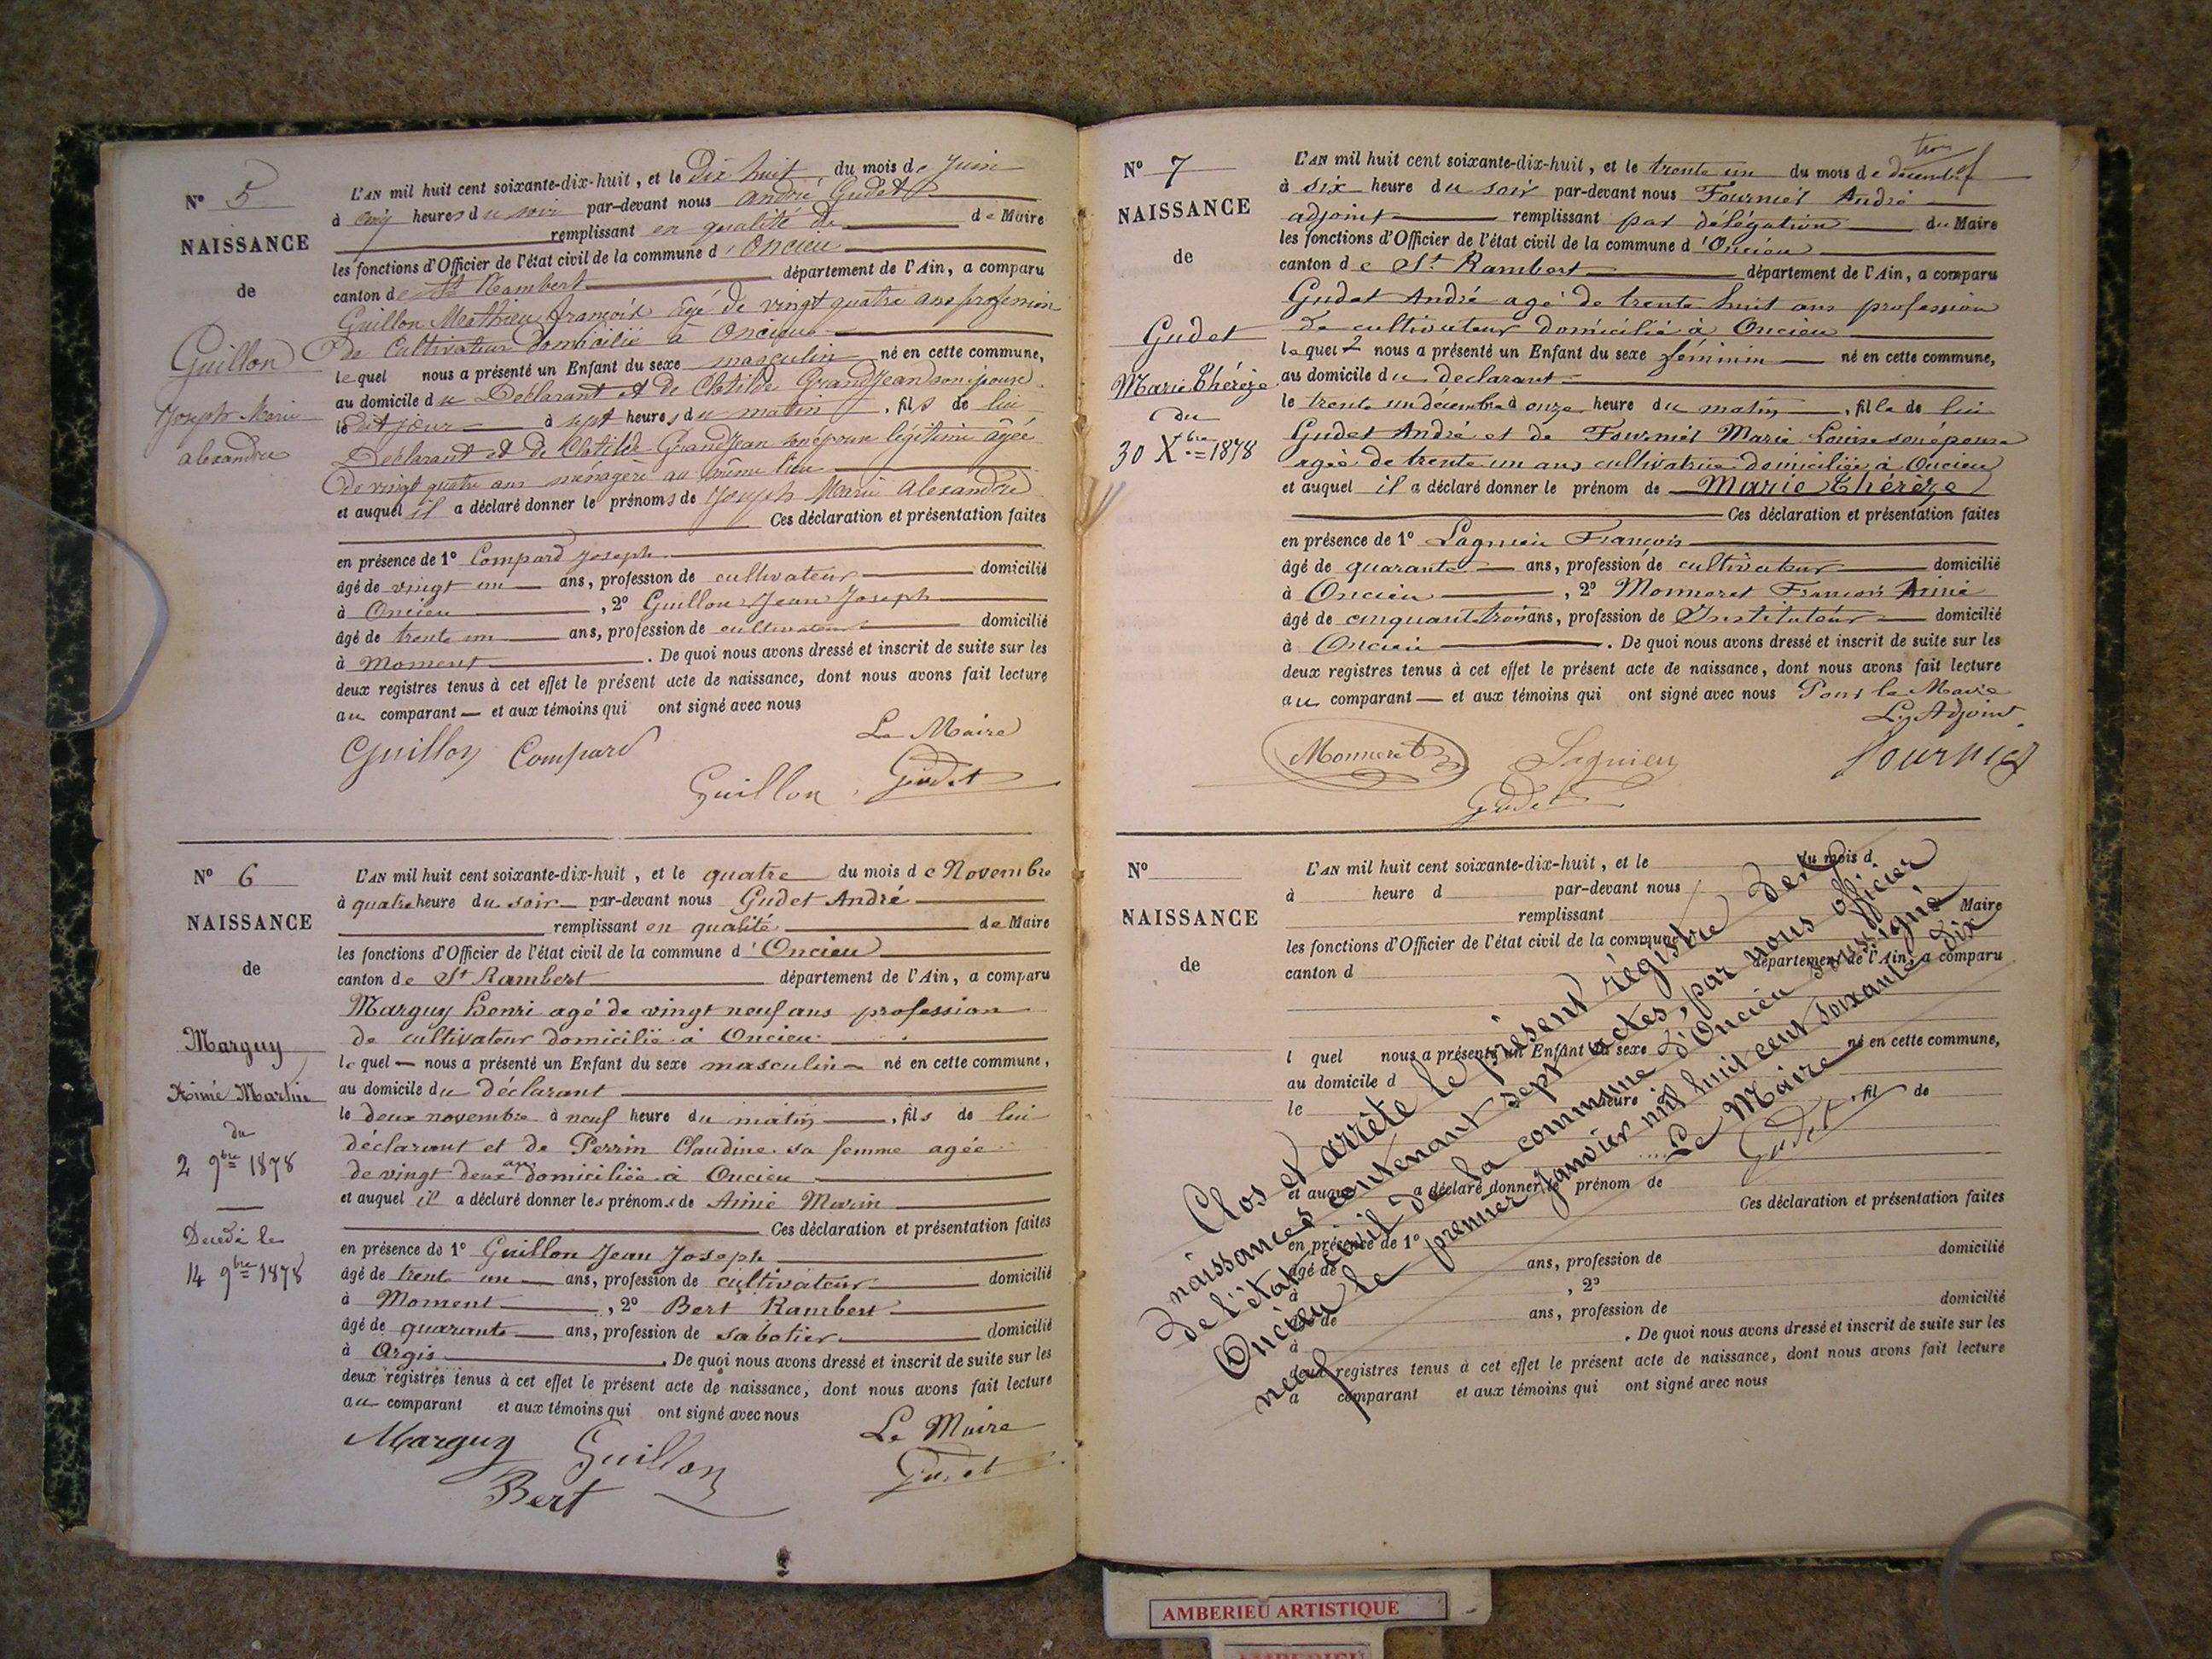 N° 5
NAISSANCE
de
Guillon
Joseph Marie
alexandre
L'AN mil huit cent soixante-dix-huit, et le Dix huit du mois de Juin
à cinq heures du soir par-devant nous andré Gudet
remplissant en qualité de de Maire
les fonctions d'Officier de l'état civil de la commune d'Oncieu
canton de St Rambert département de l'Ain, a comparu
Guillon Mathieu françois âgé de vingt quatre ans profession
de Cultivateur domicilié à Oncieu
lequel nous a présenté un Enfant du sexe masculin né en cette commune,
au domicile du Déclarant et de Clotilde Grandjean son épouse
le dit jour à sept heures du matin, fils de lui
Déclarant et de Clotilde Grandjean son épouse légitime âgée
de vingt quatre ans ménagère au même lieu
et auquel il a déclaré donner le prénoms de Joseph Marie alexandre
Ces déclaration et présentation faites
en présence de 1° Compard Joseph
âgé de vingt un ans, profession de cultivateur domicilié
à Oncieu, 2° Guillon Jean Joseph
âgé de trente un ans, profession de cultivateur domicilié
à Moment. De quoi nous avons dressé et inscrit de suite sur les
deux registres tenus à cet effet le présent acte de naissance, dont nous avons fait lecture
au comparant et aux témoins qui ont signé avec nous
Le Maire
Guillon Compard
Guillon Gudet
N° 6
NAISSANCE
de
Marguy
Aimé Martin
du
2 9bre 1878
Decedé le
14 9bre 1878
L'AN mil huit cent soixante-dix-huit, et le quatre du mois de Novembre
à quatre heure du soir par-devant nous Gudet André
remplissant en qualité de Maire
les fonctions d'Officier de l'état civil de la commune d'Oncieu
canton de St Rambert département de l'Ain, a comparu
Marguy Henri agé de vingt neuf ans profession
de cultivateur domicilié à Oncieu
lequel nous a présenté un Enfant du sexe masculin né en cette commune,
au domicile du déclarant
le deux novembre à neuf heure du matin, fils de lui
déclarant et de Perrin Claudine sa femme agée
de vingt deux ans domiciliée à Oncieu
et auquel il a déclaré donner les prénoms de Aimé Marin
Ces déclaration et présentation faites
en présence de 1° Guillon Jean Joseph
âgé de trente un ans, profession de cultivateur domicilié
à Moment, 2° Bert Rambert
âgé de quarante ans, profession de sabotier domicilié
à Argis. De quoi nous avons dressé et inscrit de suite sur les
deux registres tenus à cet effet le présent acte de naissance, dont nous avons fait lecture
au comparant et aux témoins qui ont signé avec nous
Le Maire
Marguy Guillon Gudet
Bert
trois
N° 7
NAISSANCE
de
Gudet
Marie Thérèze
du
30 Xbre 1878
L'AN mil huit cent soixante-dix-huit, et le trente un du mois de décembre
à six heure du soir par-devant nous Fournier André
adjoint remplissant par délégation du Maire
les fonctions d'Officier de l'état civil de la commune d'Oncieu
canton de St Rambert département de l'Ain, a comparu
Gudet André agé de trente huit ans profession
de cultivateur domicilié à Oncieu
lequel nous a présenté un Enfant du sexe féminin né en cette commune,
au domicile du declarant
le trente un décembre à onze heure du matin, fille de lui
Gudet André et de Fournier Marie Louise son épouse
agée de trente un ans cultivatrice domiciliée à Oncieu
et auquel il a déclaré donner le prénom de Marie Thérèze
Ces déclaration et présentation faites
en présence de 1° Lagnieu François
âgé de quarante ans, profession de cultivateur domicilié
à Oncieu, 2° Monneret François Aimé
âgé de cinquante trois ans, profession de Instituteur domicilié
à Oncieu. De quoi nous avons dressé et inscrit de suite sur les
deux registres tenus à cet effet le présent acte de naissance, dont nous avons fait lecture
au comparant et aux témoins qui ont signé avec nous Pour le Maire
L'Adjoint
Monneret Lagnieu Fournier
Gudet
N°
NAISSANCE
de
L'AN mil huit cent soixante-dix-huit, et le du mois d
à heure d par-devant nous
remplissant Maire
les fonctions d'Officier de l'état civil de la commune
canton d département de l'Ain, a comparu
l quel nous a présenté un Enfant du sexe né en cette commune,
au domicile d
le heure, fil de
et auquel a déclaré donner le prénom de
Ces déclaration et présentation faites
en présence de 1°
âgé de ans, profession de domicilié
à , 2°
âgé de ans, profession de domicilié
à . De quoi nous avons dressé et inscrit de suite sur les
deux registres tenus à cet effet le présent acte de naissance, dont nous avons fait lecture
a comparant et aux témoins qui ont signé avec nous
Clos et arrêté le présent régistre des
naissances contenant sept actes, par nous officier
de l'état civil de la commune d'Oncieu soussigné
Oncieu le premier Janvier mil huit cent soixante dix
neuf
Le Maire
Gudet
AMBERIEU ARTISTIQUE
AMBERIEU